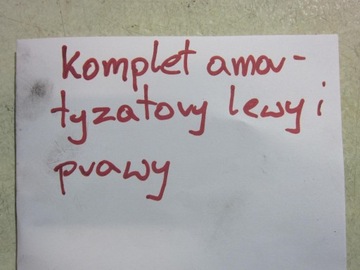 Komplet amor-
tyzatory lewy i
prawy